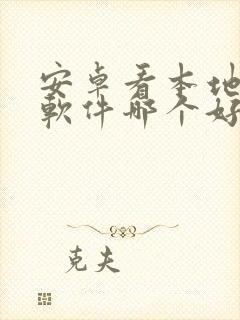 安卓看本地
軟件哪个好
克夫